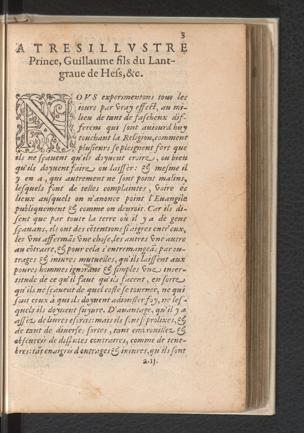 3
A TRESILLVSTRE
Prince, Guillaume fils du Lant-
graue de Hess, &c.
NOVS experimentons tous les
iours par vray effect, au mi-
lieu de tant de fascheux dif-
ferens qui sont auiourd'huy
touchant la Religion, comment
plusieurs se pleignent fort que
ils ne sçauent qu'ils doyuent croire, ou bien
qu'ils doyuent faire ou laisser: & mesme il
y en a, qui autrement ne sont point malins,
lesquels font de telles complaintes, voire és
lieux ausquels on n'annonce point l'Euangile
publiquement & comme on deuroit. Car ils di-
sent que par toute la terre où il y a de gens
sçauans, ils ont des côtentions si aigres entr'eux,
les vns affermās vne chose, les autres vne autre
au côtraire, & pour cela s'entremangēt par ou-
trages & iniures mutuelles, qu'ils laissent aux
poures hommes ignorans & simples vne incer-
titude de ce qu'il faut qu'ils facent, en sorte
qu'ils ne sçauent de quel costé se tourner, ne qui
sont ceux à qui ils doyuent adiouster foy, ne les-
quels ils doyuent fuyure. D'auantage, qu'il y a
assez de liures escrits: mais ils sont si prolixes, &
de tant de diuerses sortes, tant entrouillez &
obscurcis de disputes contraires, comme de tene-
bres: tāt enaigris d'outrages & iniures, qu'ils sont
a.ij.